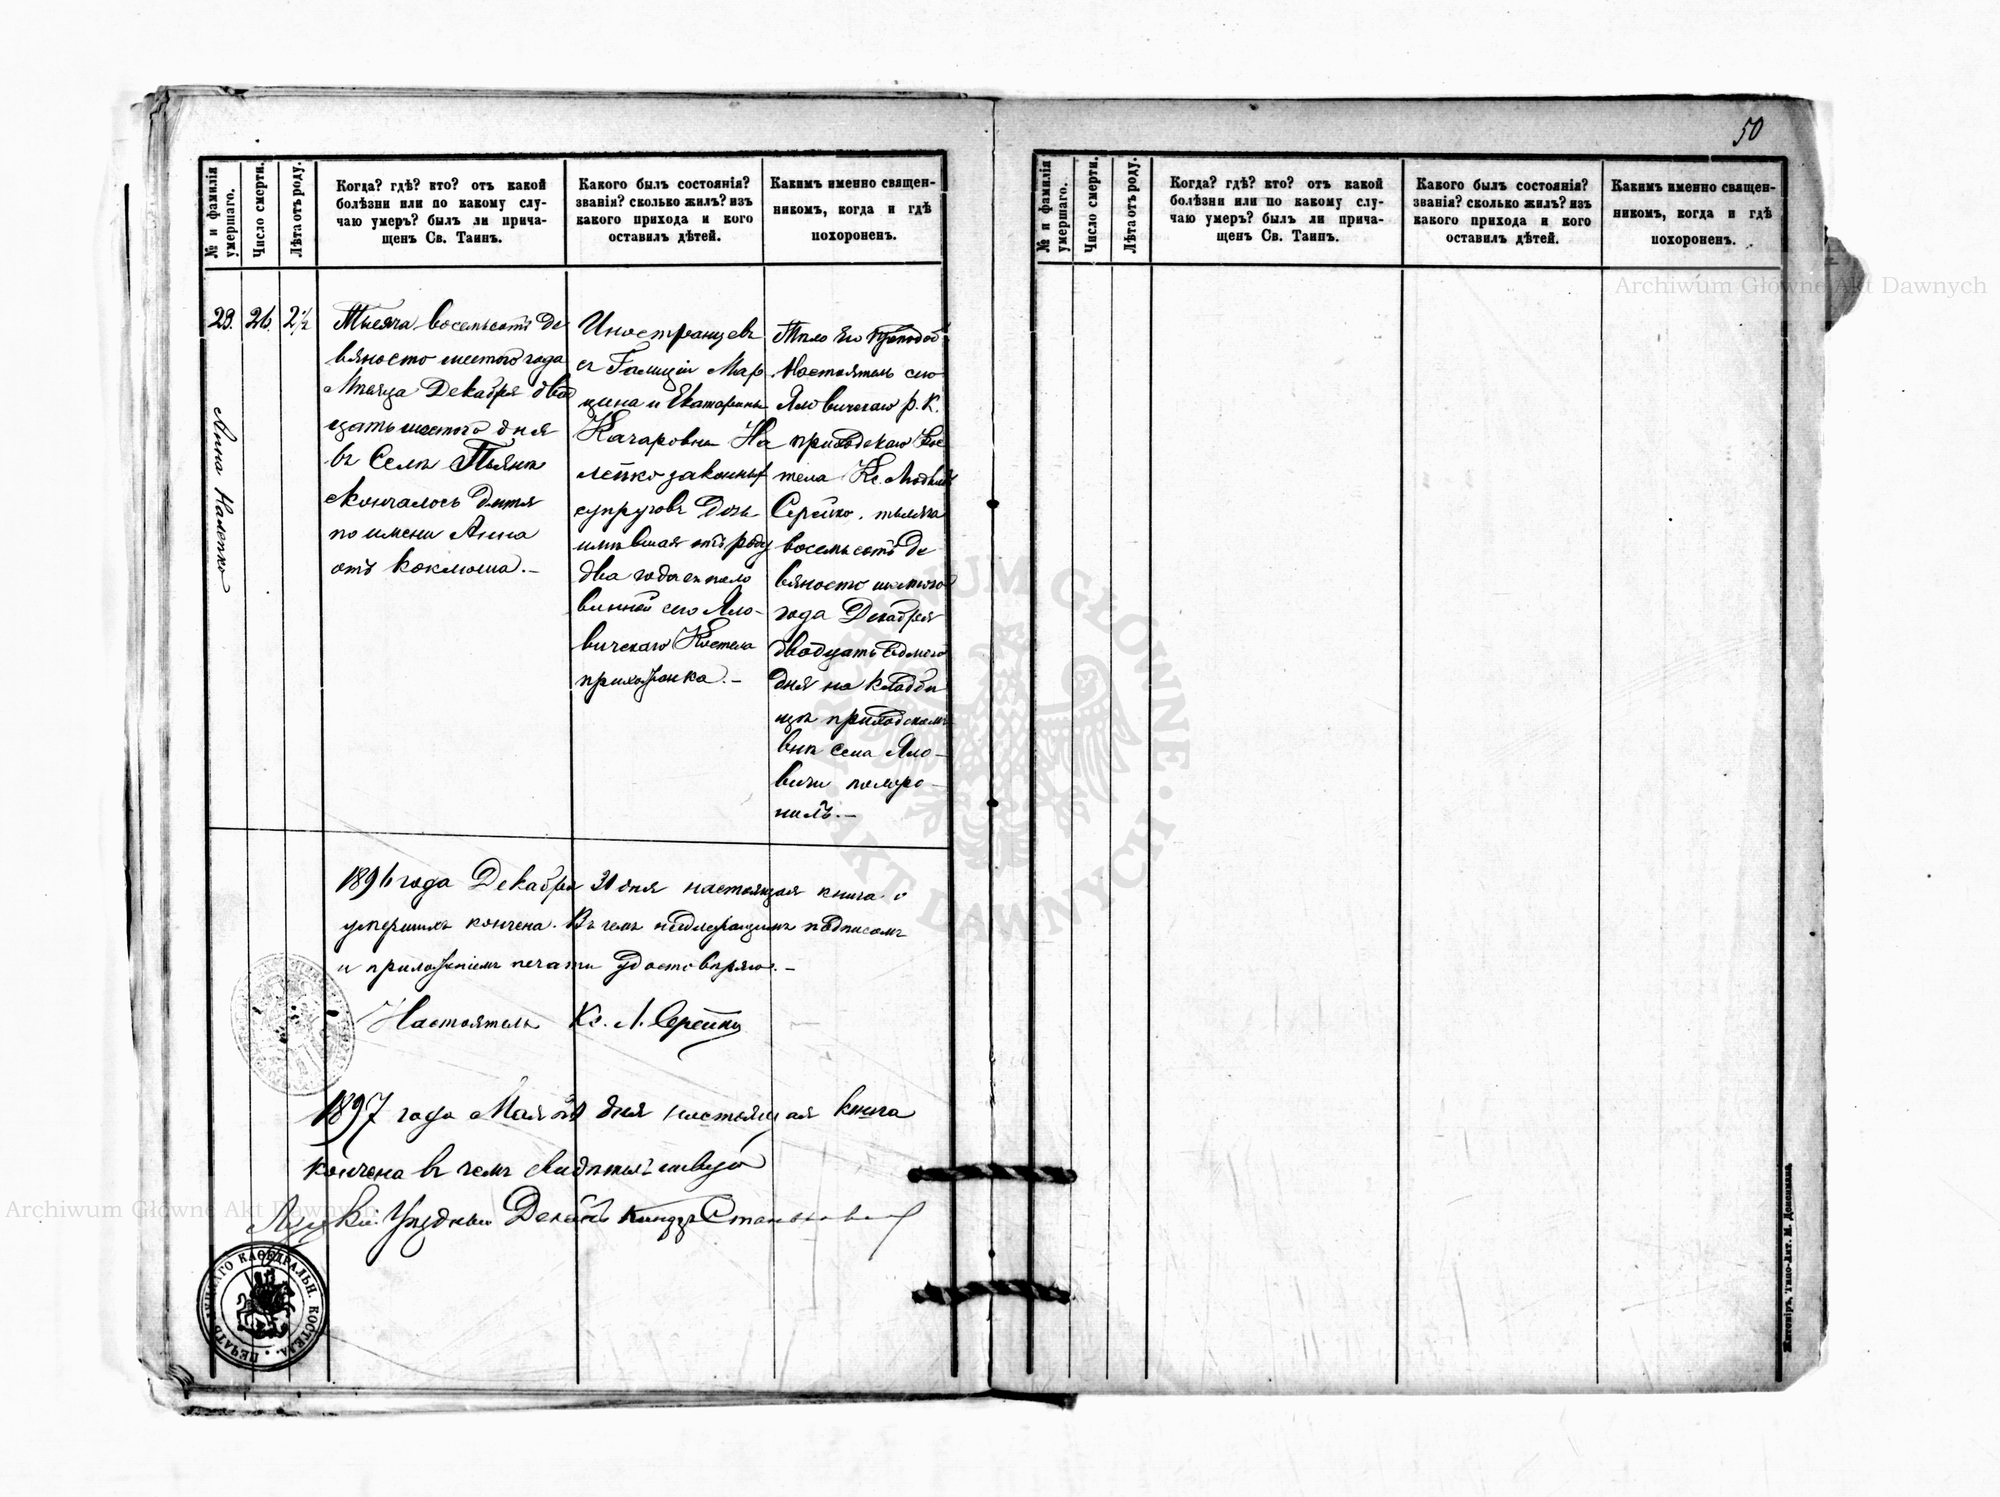 50
№ и фамилія умершаго.
Число смерти.
Лѣта отъ роду.
Когда? гдѣ? кто? отъ какой
болѣзни или по какому слу-
чаю умеръ? былъ ли прича-
щенъ Св. Таинъ.
Какого былъ состоянія?
званія? сколько жилъ? изъ
какого прихода и кого
оставилъ дѣтей.
Какимъ именно священ-
никомъ, когда и гдѣ
похороненъ.
29.
26.
2½
Анна Налепко
Тысяча восемьсотъ де
вяносто шестого года
Мѣсяца Декабря двад
цать шестого дня
въ Селѣ Пьянѣ
скончалось дитя
по имени Анна
отъ коклюша.–
Иностранцевъ
съ Галиціи Мар
цина и Екатерины
На
лепко законныхъ
супруговъ дочь
имѣвшая отъ роду
два года съ поло
винной сего Яло-
вичскаго Костела
прихожанка.–
Тѣло Ея
Настоятель сего
Яловичскаго Р. К.
приходскаго Кос
тела Кс.
Серейко тысяча
восемьсотъ де
вяносто шестого
года Декабря
двадцать седмого
дня на кладби
щѣ приходскомъ
внѣ села Яло-
вичи похоро-
нилъ.–
1896 года Декабря 31 дня настоящая книга о
умершихъ кончена. Въ чемъ подписомъ
и приложеніемъ печати удостовѣряю.–
Настоятель Кс. Л. Серейко
1897 года Мая дня настоящая книга
кончена въ чемъ свидѣтельствую
Уѣздный Деканъ Ксендзъ
ПЕЧАТЬ ЛУЦКАГО КАѲЕДРАЛЬН. КОСТЕЛА.
№ и фамилія умершаго.
Число смерти.
Лѣта отъ роду.
Когда? гдѣ? кто? отъ какой
болѣзни или по какому слу-
чаю умеръ? былъ ли прича-
щенъ Св. Таинъ.
Какого былъ состоянія?
званія? сколько жилъ? изъ
какого прихода и кого
оставилъ дѣтей.
Какимъ именно священ-
никомъ, когда и гдѣ
похороненъ.
Житоміръ, Типо-Лит. М. Дененмана.
Archiwum Główne Akt Dawnych
Archiwum Główne Akt Dawnych
ARCHIWUM GŁÓWNE · AKT DAWNYCH ·